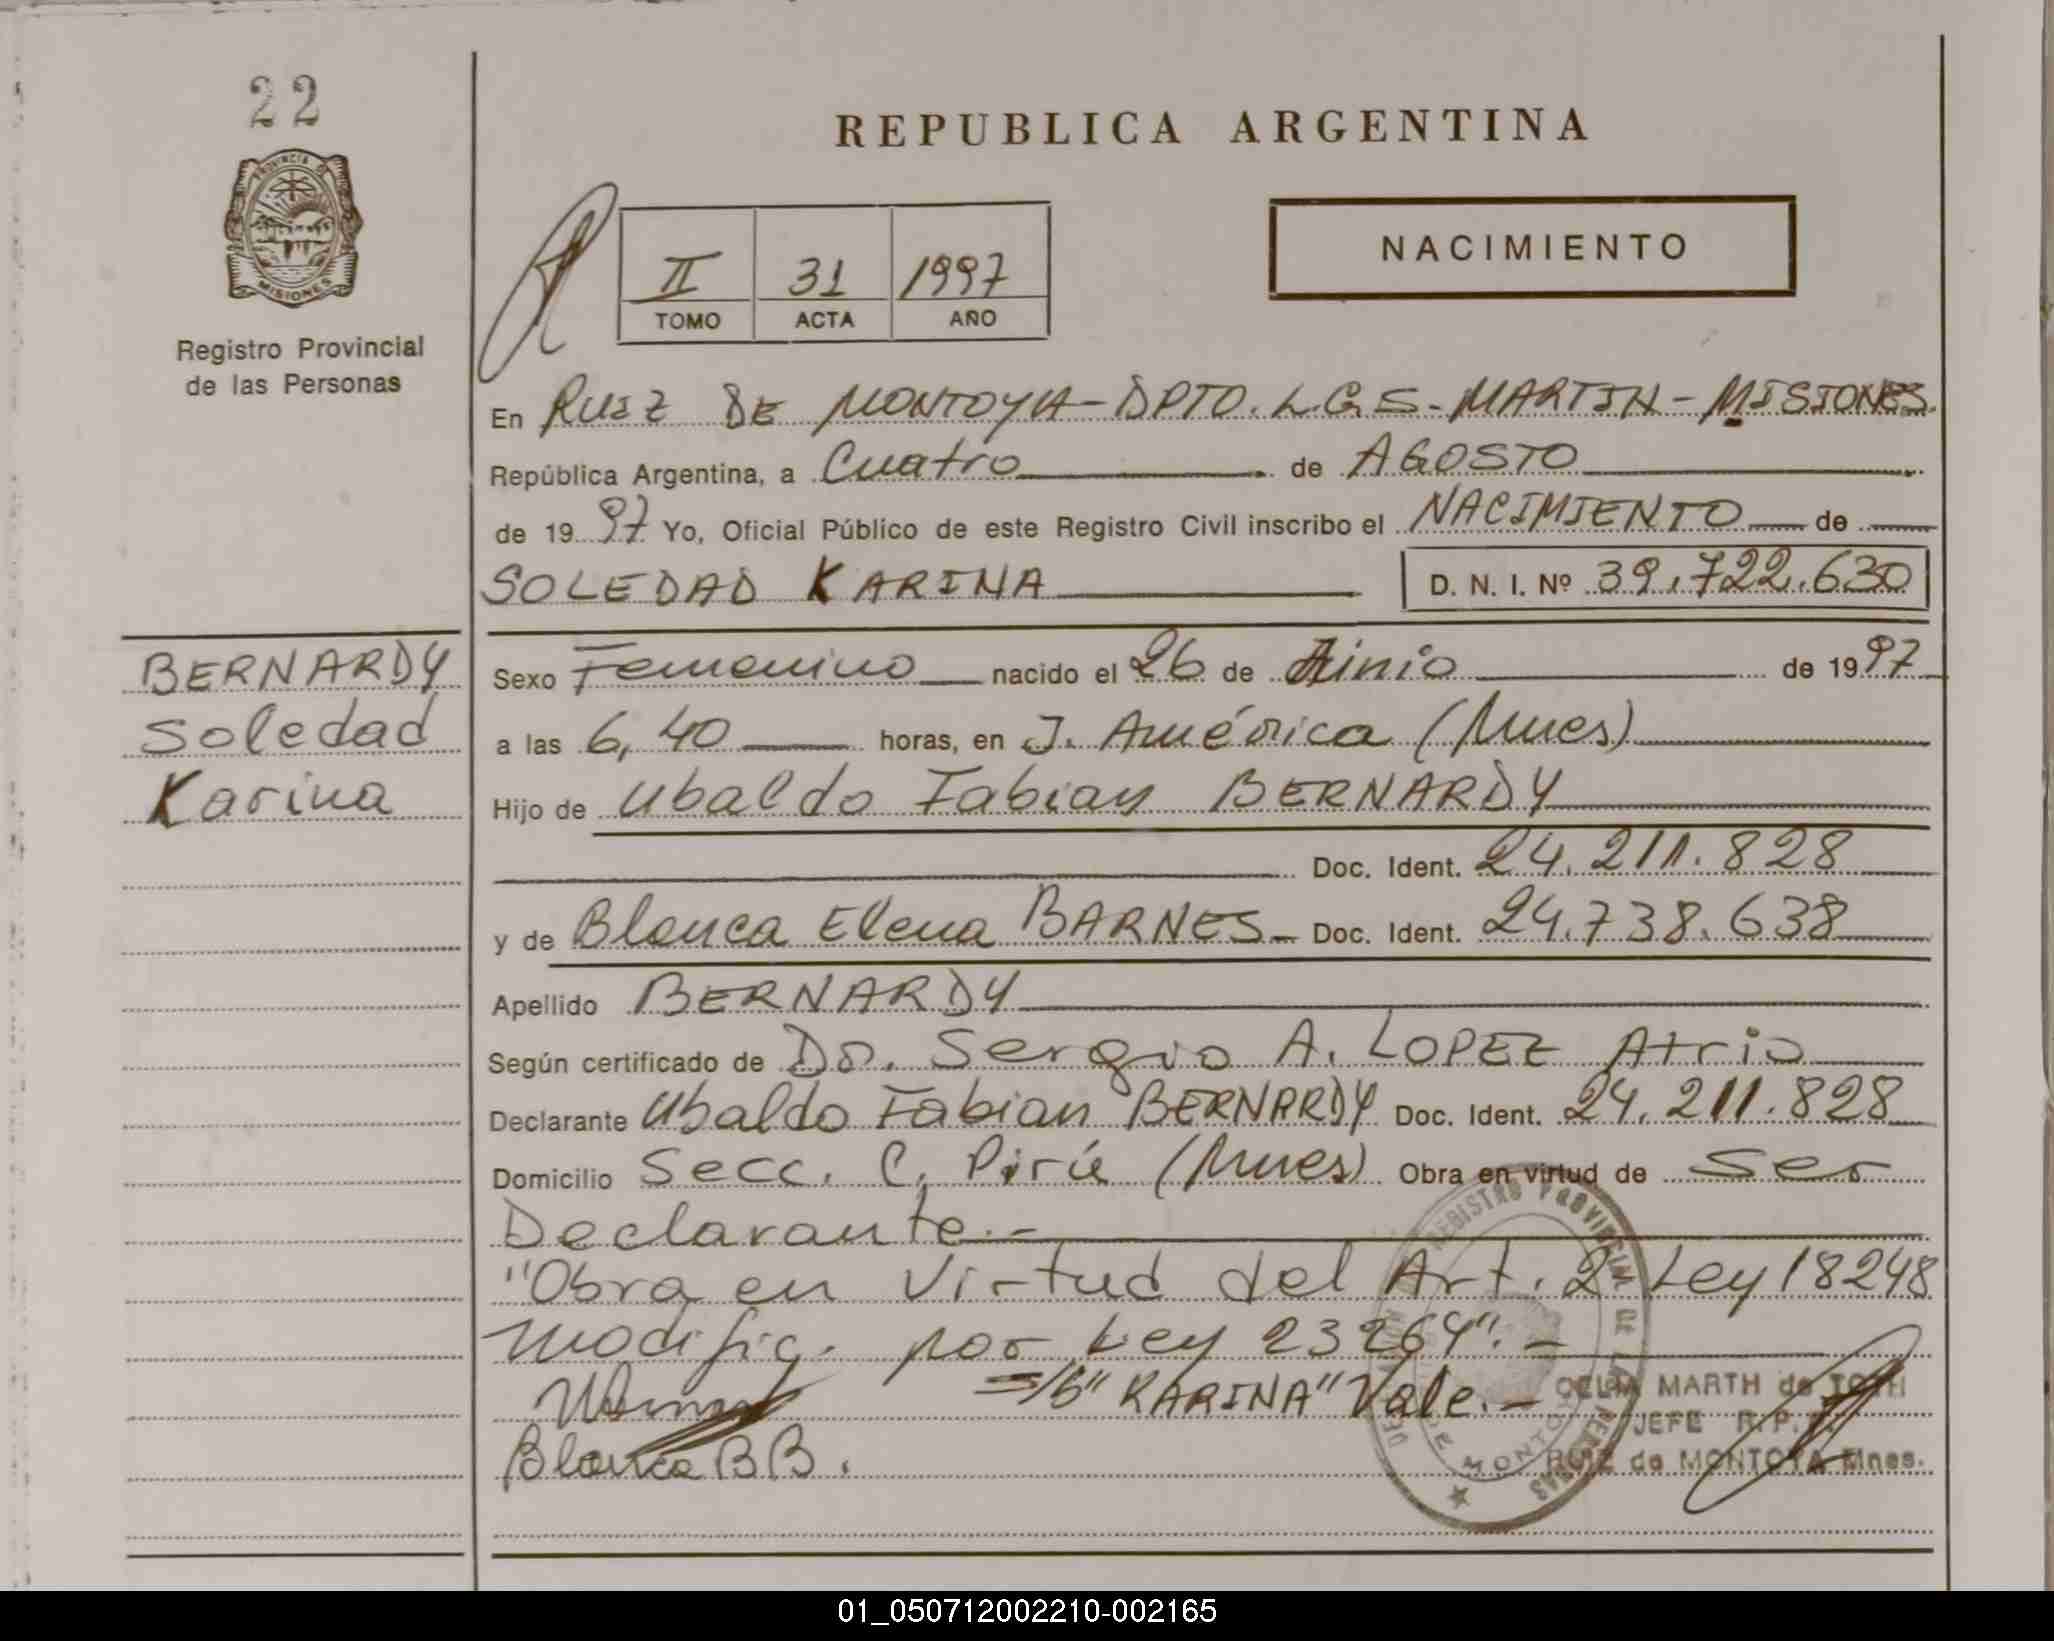 22
PROVINCIA DE
MISIONES
Registro Provincial
de las Personas
REPUBLICA ARGENTINA
II 31 1997
TOMO ACTA AÑO
NACIMIENTO
En RUIZ DE MONTOYA-DPTO. L.G.S.-MARTIN-MISIONES.
República Argentina, a Cuatro de AGOSTO
de 1997 Yo, Oficial Público de este Registro Civil inscribo el NACIMIENTO de
SOLEDAD KARINA D. N. I. Nº 39.722.630
BERNARDY
Soledad
Karina
Sexo Femenino nacido el 26 de de 1997
a las 6,40 horas, en J. América (Mnes)
Hijo de Ubaldo Fabian BERNARDY
Doc. Ident. 24.211.828
y de Blanca Elena BARNES- Doc. Ident. 24.738.638
Apellido BERNARDY
Según certificado de Dr. Sergio A. LOPEZ Atrio
Declarante Ubaldo Fabian BERNARDY Doc. Ident. 24.211.828
Domicilio Secc. C. Pirú (Mnes) Obra en virtud de Ser
Declarante.-
"Obra en Virtud del Art. 2 Ley 18248
modific. por Ley 23264".-
S/b "KARINA" Vale.-
Blanca B B.
REGISTRO PROVINCIAL DE LAS PERSONAS
DE MONTOYA
CELIA MARTH de TOTH
JEFE R.P.
RUIZ de MONTOYA Mnes.
01_050712002210-002165